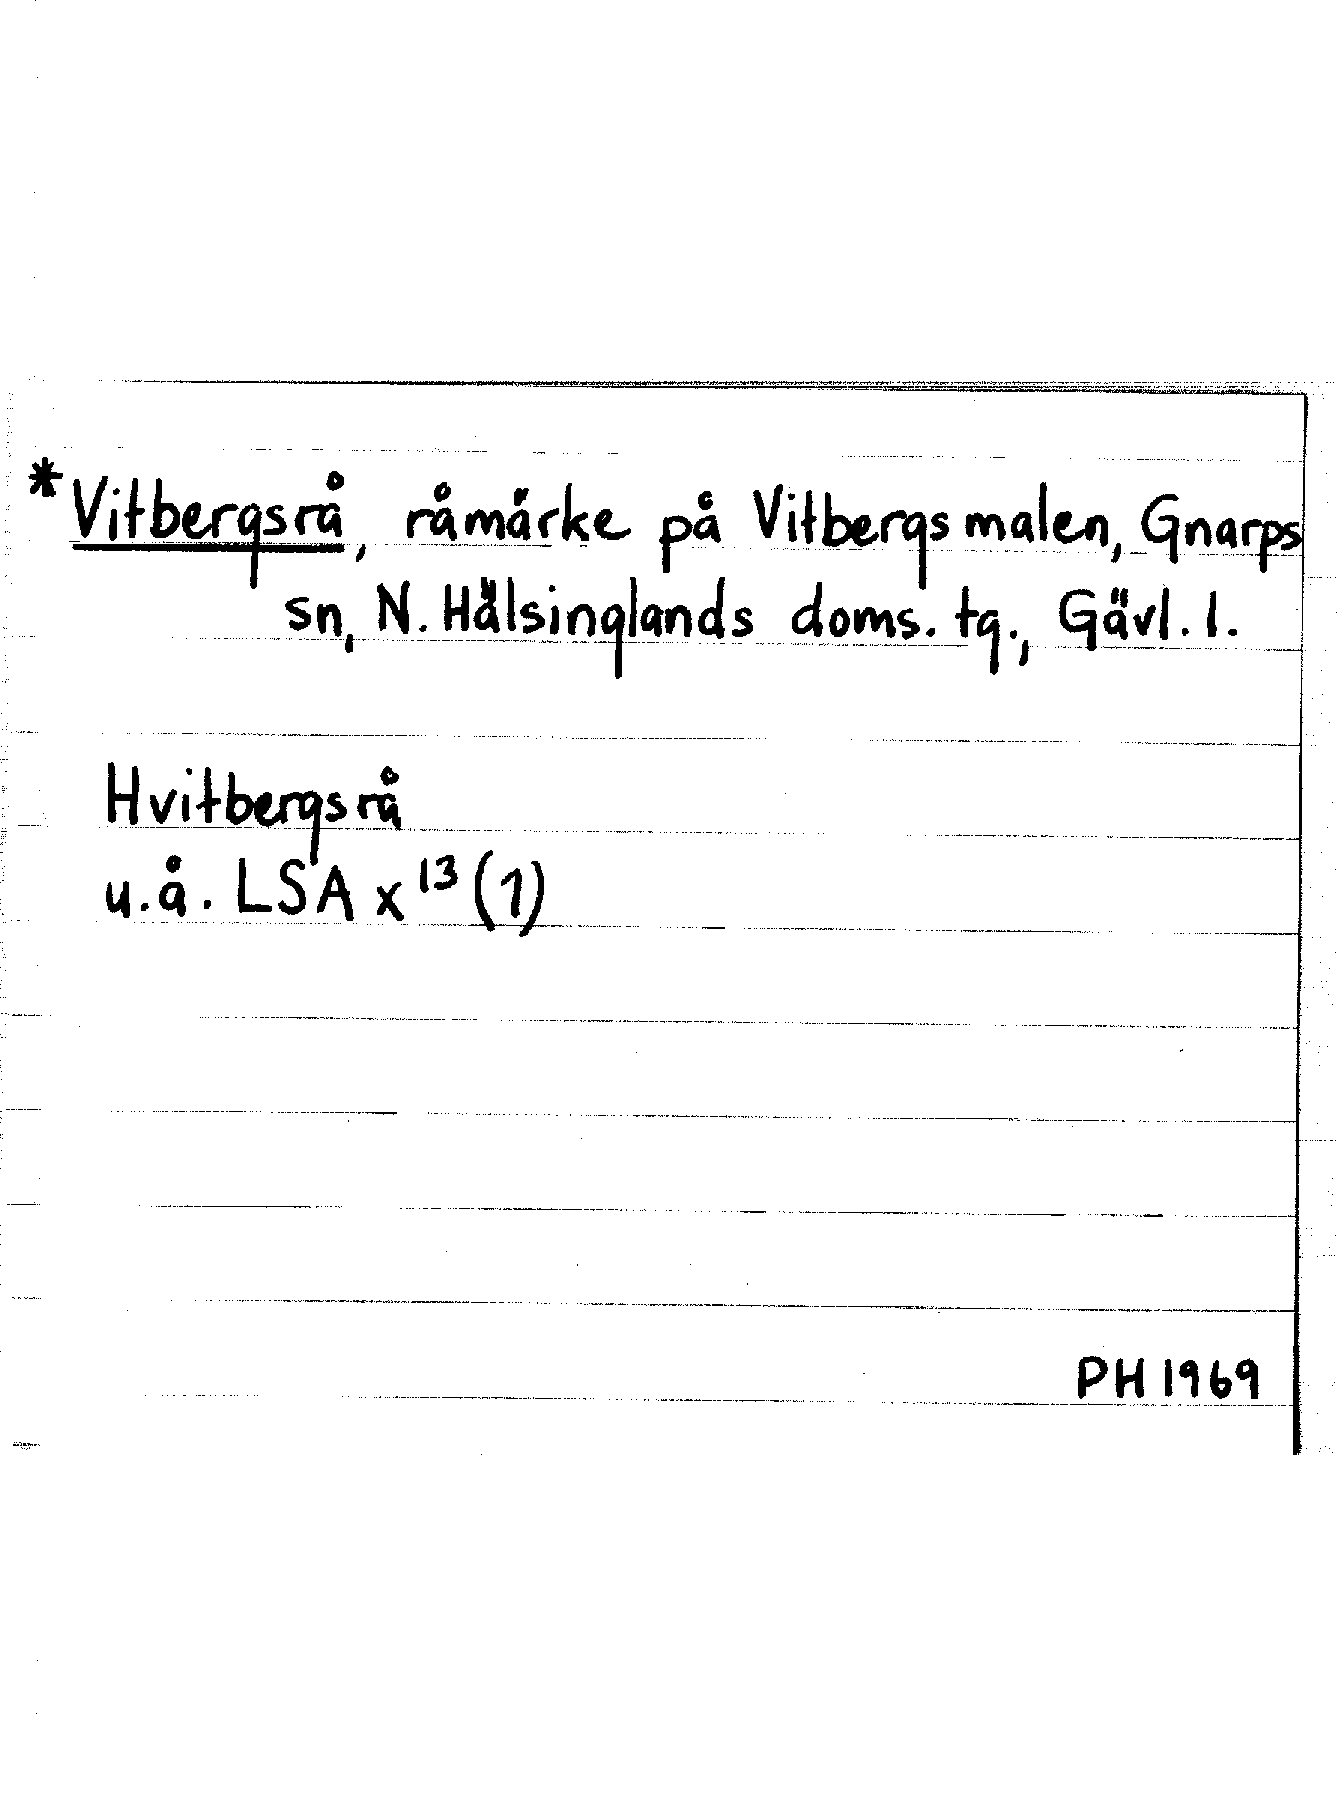 *Vitbergsrå, råmärke på Vitbergsmalen, Gnarps
sn, N. Hälsinglands doms. tg., Gävl. l.
Hvitbergsrå
u.å. LSA x¹³(1)
PH 1969